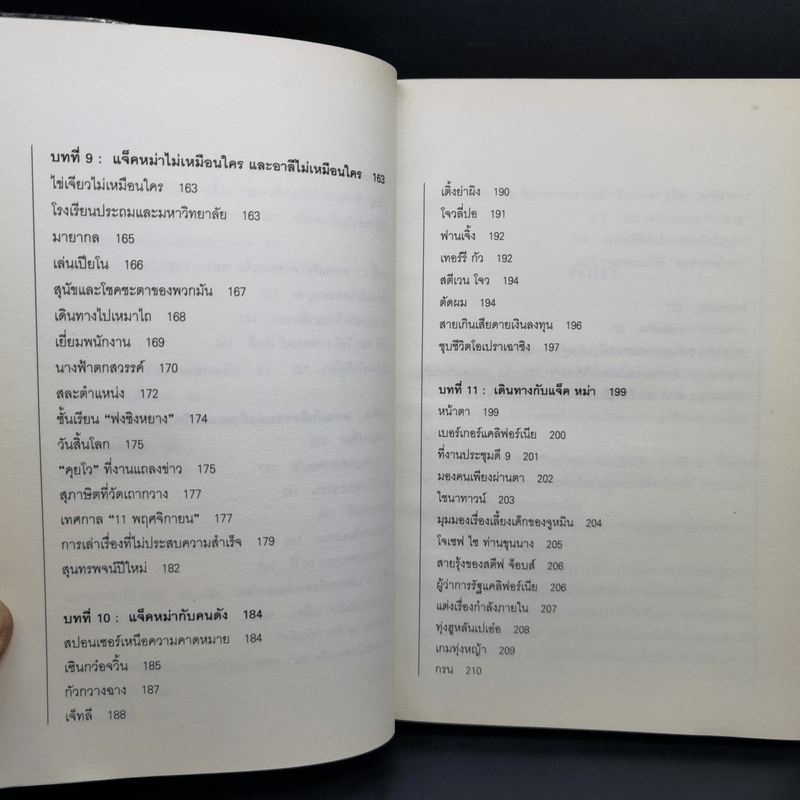 บทที่ 9 : แจ็คหม่าไม่เหมือนใคร และอาลีไม่เหมือนใคร 163
ไข่เจียวไม่เหมือนใคร 163
โรงเรียนประถมและมหาวิทยาลัย 163
มายากล 165
เล่นเปียโน 166
สุนัขและโชคชะตาของพวกมัน 167
เดินทางไปเหมาไถ 168
เยี่ยมพนักงาน 169
นางฟ้าตกสวรรค์ 170
สละตำแหน่ง 172
ชั้นเรียน "ฟงชิงหยาง" 174
วันสิ้นโลก 175
"คุยโว" ที่งานแถลงข่าว 175
สุภาษิตที่วัดเถากวาง 177
เทศกาล "11 พฤศจิกายน" 177
การเล่าเรื่องที่ไม่ประสบความสำเร็จ 179
สุนทรพจน์ปีใหม่ 182
บทที่ 10 : แจ็คหม่ากับคนดัง 184
สปอนเซอร์เหนือความคาดหมาย 184
เซินกว๋อจวิ้น 185
กัวกวางฉาง 187
เจ็ทลี 188
เติ้งย่าผิง 190
โจวลี่ปอ 191
ฟานเจิ้ง 192
เทอร์รี กัว 192
สตีเวน โจว 194
ตัดผม 194
สายเกินเสียดายเงินลงทุน 196
ชุบชีวิตโอเปราเฉาซิง 197
บทที่ 11 : เดินทางกับแจ็ค หม่า 199
หน้าตา 199
เบอร์เกอร์แคลิฟอร์เนีย 200
ที่งานประชุมดี 9 201
มองคนเพียงผ่านตา 202
ไชนาทาวน์ 203
มุมมองเรื่องเลี้ยงเด็กของจูหมิน 204
โจเซฟ ไช ท่านขุนนาง 205
สายรุ้งของสตีฟ จ็อบส์ 206
ผู้ว่าการรัฐแคลิฟอร์เนีย 206
แต่งเรื่องกำลังภายใน 207
ทุ่งฮูหลันเปเอ๋อ 208
เกมทุ่งหญ้า 209
กรน 210